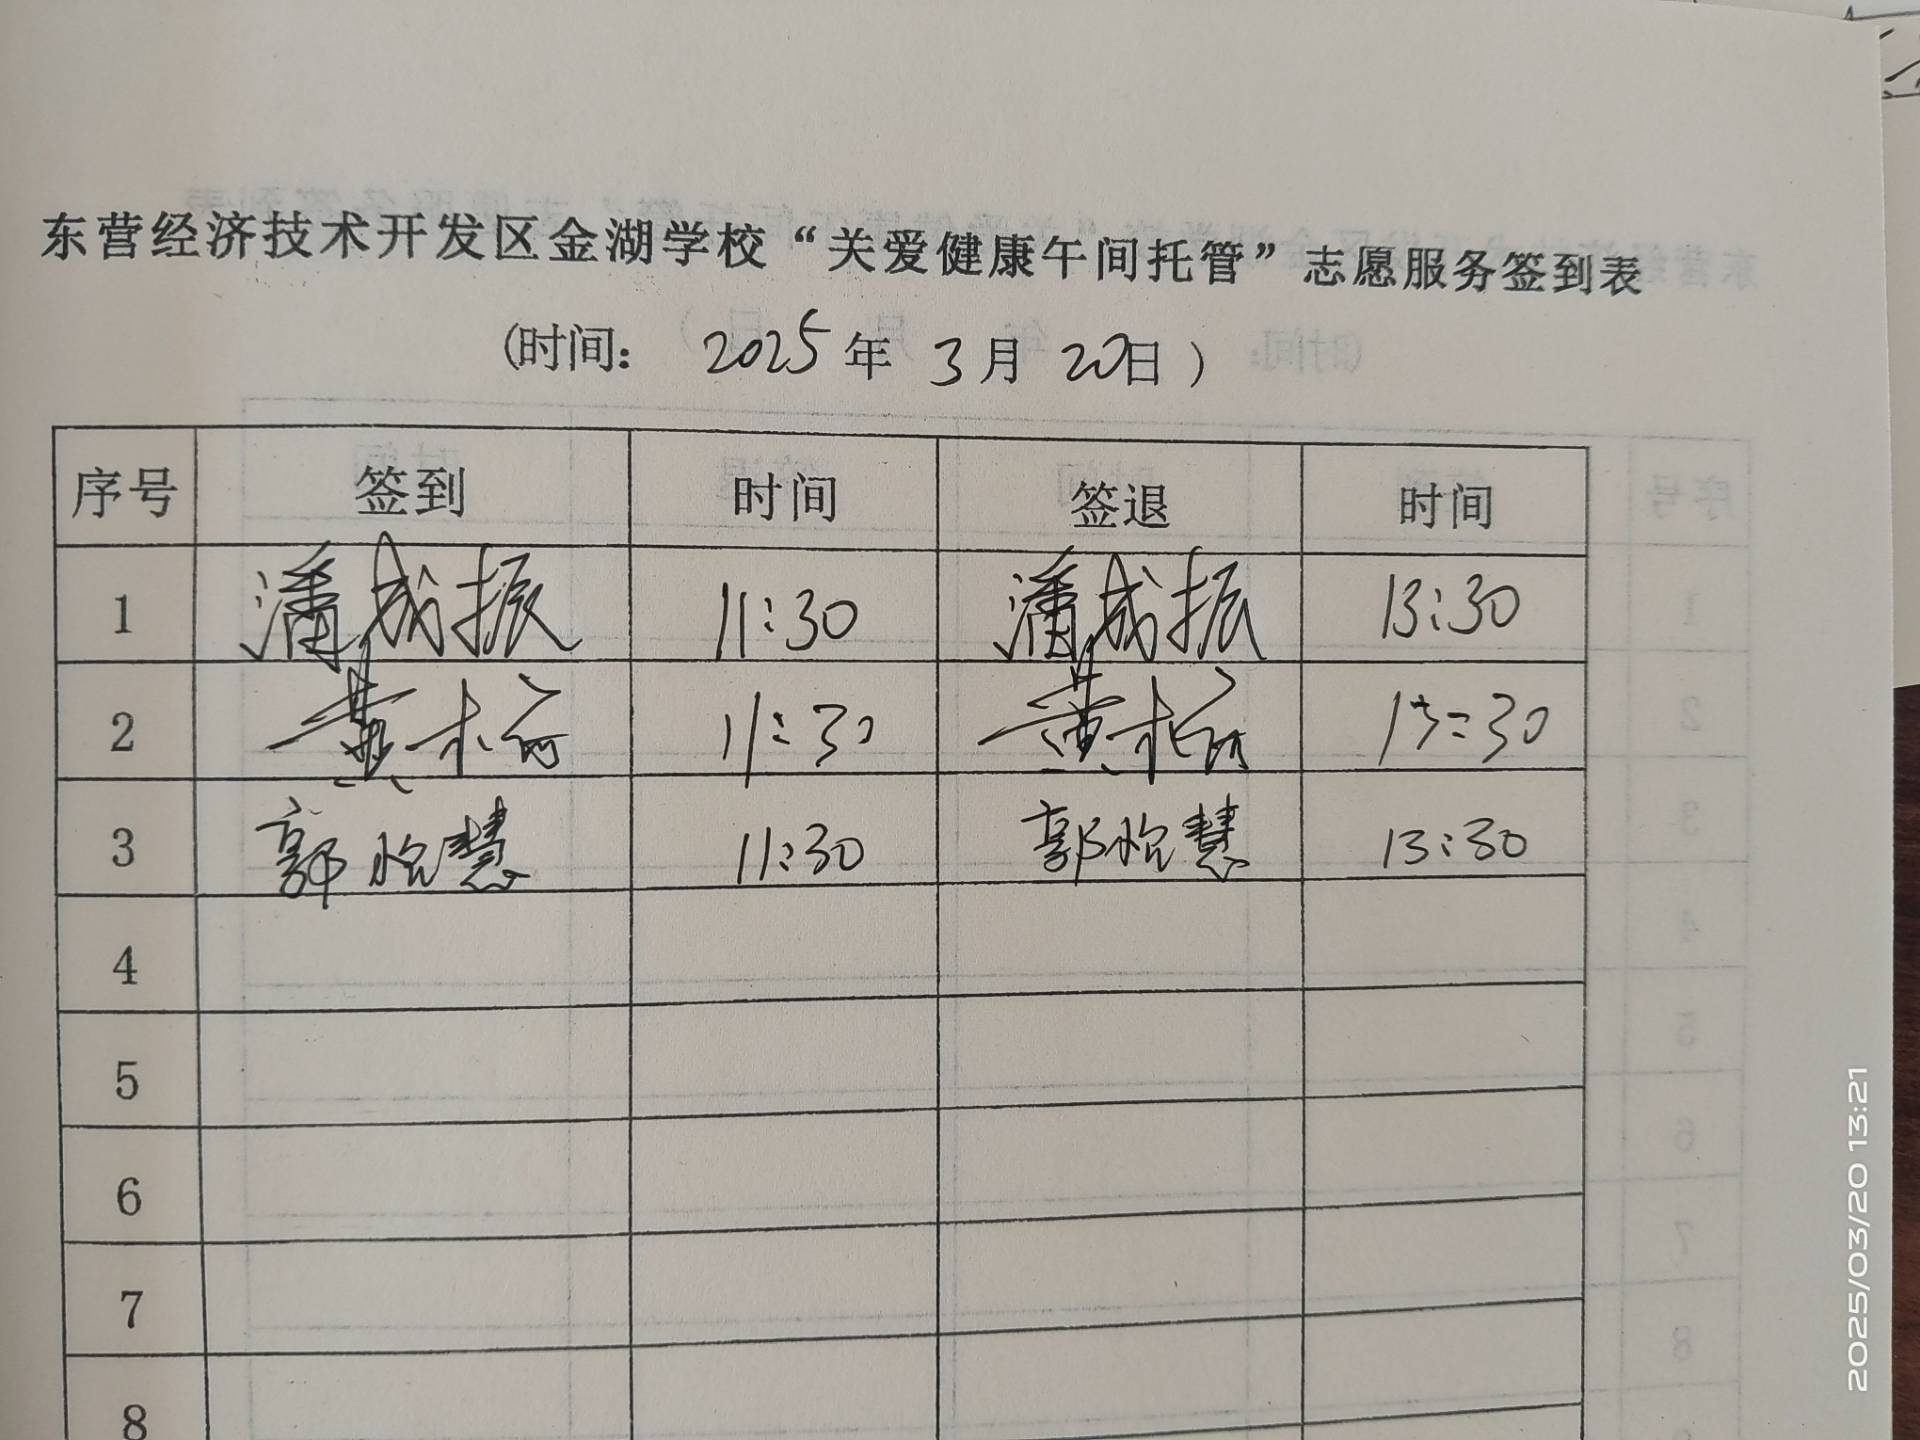 东营经济技术开发区金湖学校“关爱健康午间托管”志愿服务签到表
(时间: 2025年 3月 20日)
序号 签到 时间 签退 时间
1 潘成振 11:30 潘成振 13:30
2 黄 11:30 黄 13:30
3 郭怡慧 11:30 郭怡慧 13:30
4
5
6
7
8
2025/03/20 13:21